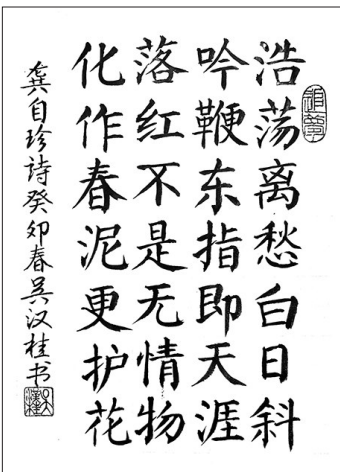 浩荡离愁白日斜
吟鞭东指即天涯
落红不是无情物
化作春泥更护花
龚自珍诗癸卯春吴汉桂书